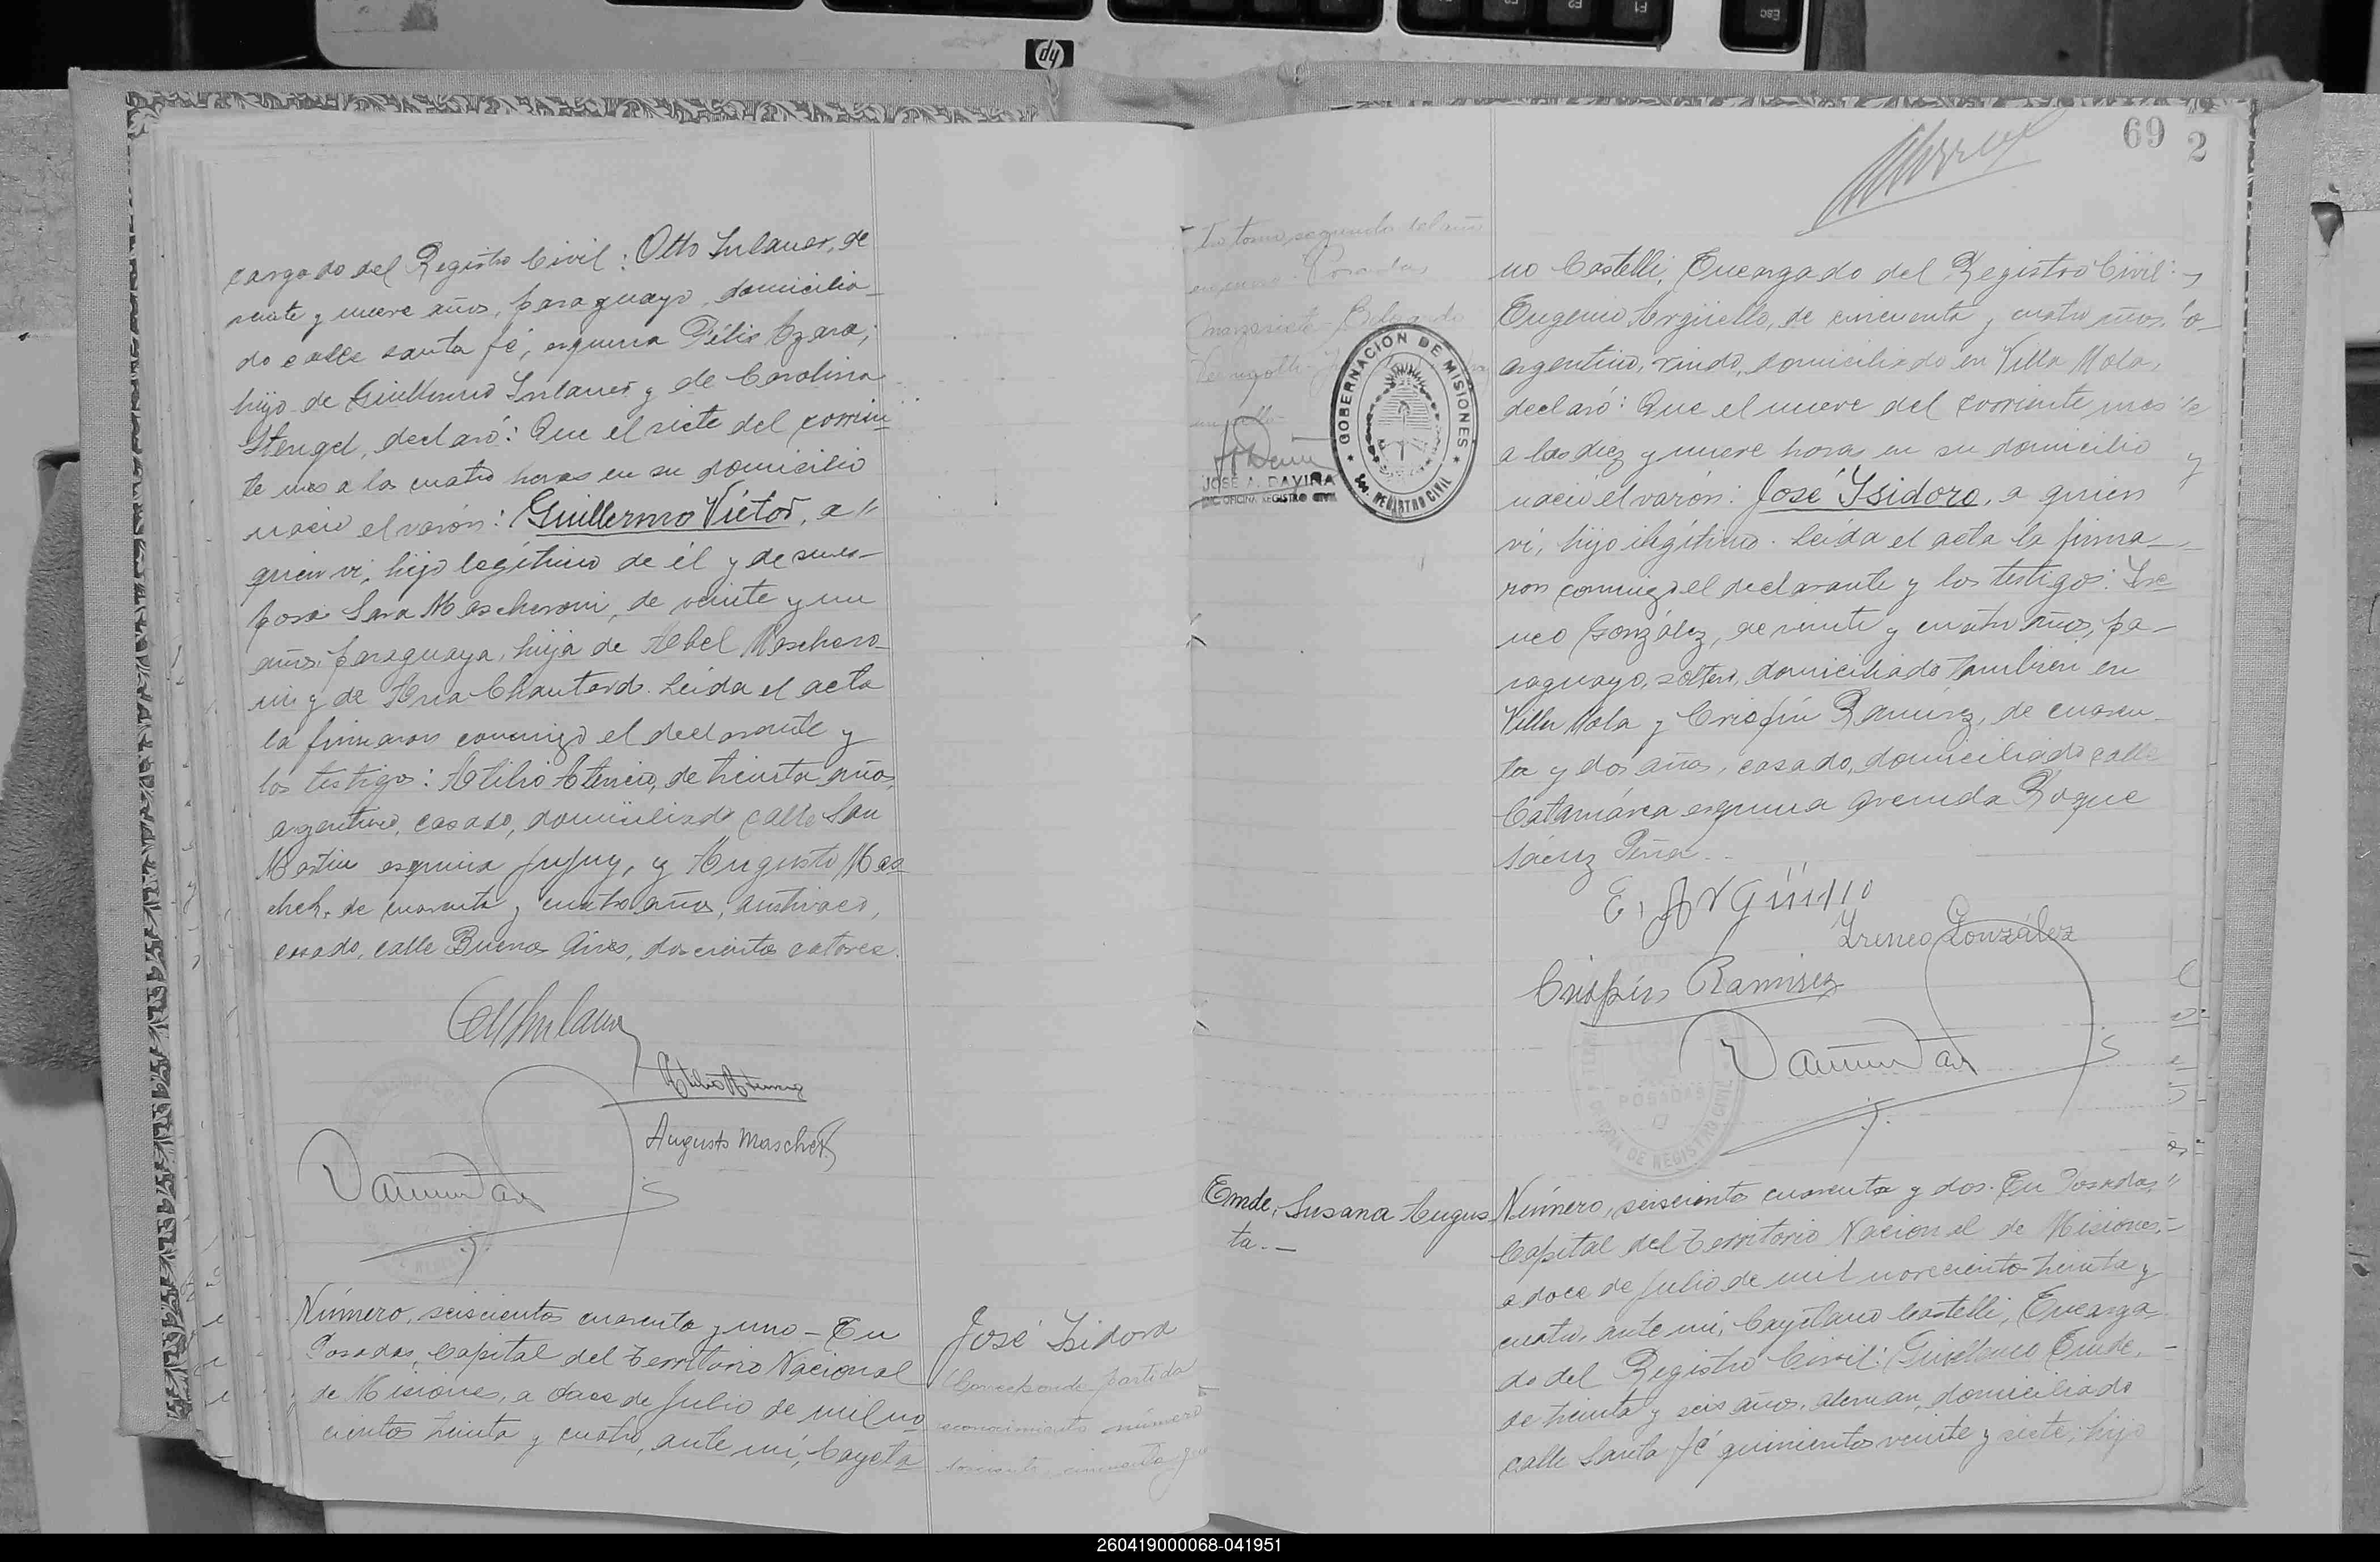 cargado del Registro Civil: Otto Inlauer, de
veinte y nueve años, paraguayo, domicilia-
do calle Santa Fé, esquina Félix Azara;
hijo de Guillermo Inlauer y de Carolina
Stengel, declaró: Que el siete del corrien-
te mes a las cuatro horas en su domicilio
nació el varón: Guillermo Víctor, a
quien vi, hijo legítimo de él y de su es-
posa Sara Mascheroni, de veinte y un
años, paraguaya, hija de Abel Maschero-
ni y de Ana Chautard. Leída el acta
la firmaron conmigo el declarante y
los testigos: Atilio Atencio, de treinta años,
argentino, casado, domiciliado calle San
Martin esquina Jujuy, y Augusto Mas
chek, de cuarenta y cuatro años, austriaco,
casado, calle Buenos Aires, doscientos catorce.
Augusto Maschek
Número, seiscientos cuarenta y uno - En
Posadas, Capital del Territorio Nacional
de Misiones, a doce de Julio de mil no
cientos treinta y cuatro, ante mí, Cayeta
José Isidoro
Corresponde partida
reconocimiento número
69 2
tro tomo segundo del año
Posadas
JOSÉ A. DAVIÑA
ENC. OFICINA REGISTRO CIVIL
GOBERNACION DE MISIONES
REGISTRO CIVIL
no Castelli, Encargado del Registro Civil:
Eugenio Argüello, de cincuenta y cuatro años,
argentino, viudo, domiciliado en Villa Mola,
declaró: Que el nueve del corriente mes
a las diez y nueve horas en su domicilio
nació el varón: José Isidoro, a quien
vi, hijo ilegítimo. Leída el acta la firma-
ron conmigo el declarante y los testigos: Ire
neo González, de veinte y cuatro años, pa-
raguayo, soltero, domiciliado tambien en
Villa Mola y Crispín Ramírez, de cuaren-
ta y dos años, casado, domiciliado calle
Catamarca esquina Avenida Roque
Sáenz Peña.
E. Argüello
Ireneo González
Crispín Ramirez
POSADAS
OFICINA DE REGISTRO CIVIL
Emde, Susana Augus
ta.-
Número, seiscientos cuarenta y dos. En Posadas,
Capital del Territorio Nacional de Misiones,
a doce de Julio de mil novecientos treinta y
cuatro, ante mí, Cayetano Castelli, Encarga-
do del Registro Civil: Guillermo Emde,
de treinta y seis años, aleman, domiciliado
calle Santa Fé quinientos veinte y siete; hijo
260419000068-041951